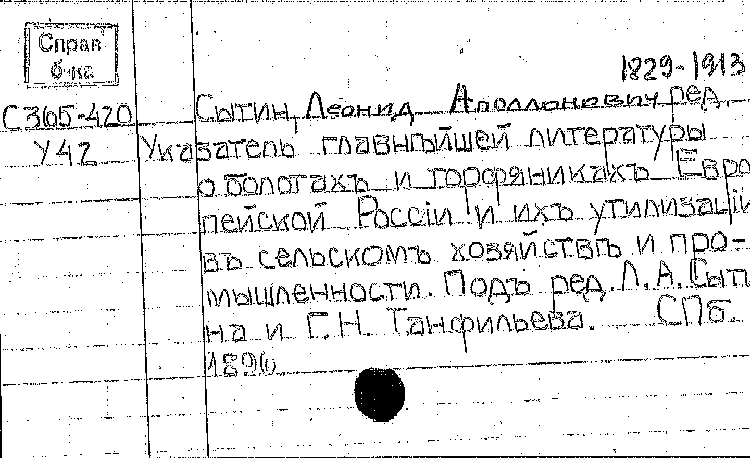 Справ
б-ка
1829-1913
С365-420 Сытин, Леонид Аполлонович ред.
У42 Указатель главнѣйшей литературы
о болотахъ и торфяникахъ Евро
пейской Россіи и ихъ утилизаціи
въ сельскомъ хозяйствѣ и про-
мышленности. Подъ ред. Л. А. Сыти
на и Г. Н. Танфильева. СПб.
1896.